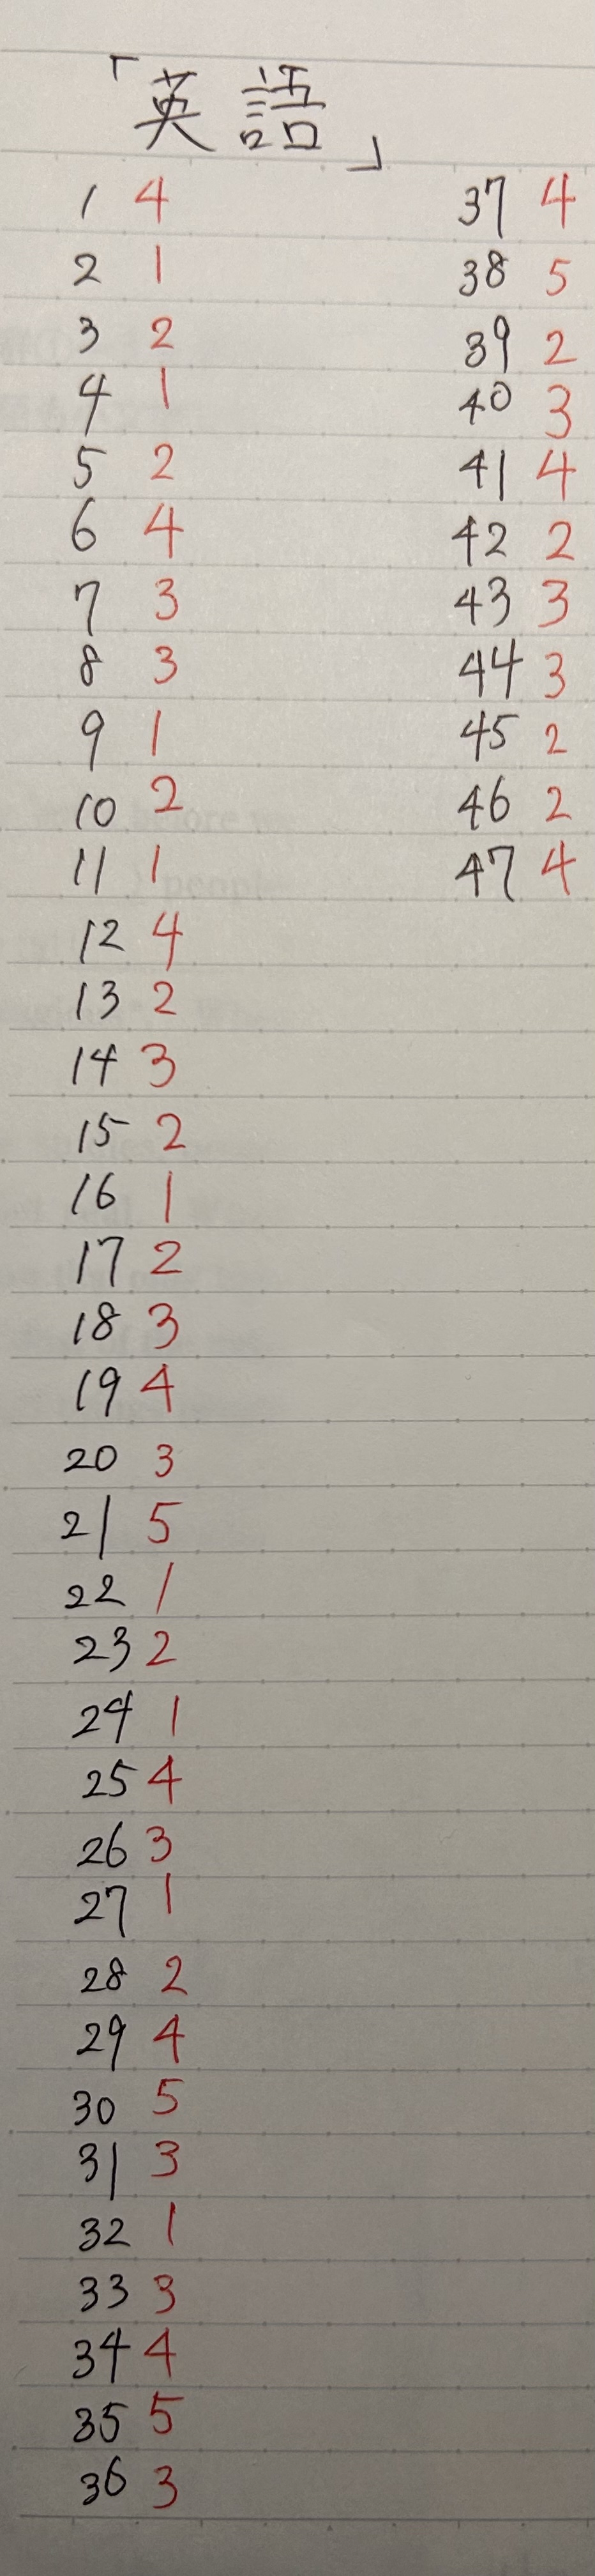 「英語」
1 4
2 1
3 2
4 1
5 2
6 4
7 3
8 3
9 1
10 2
11 1
12 4
13 2
14 3
15 2
16 1
17 2
18 3
19 4
20 3
21 5
22 1
23 2
24 1
25 4
26 3
27 1
28 2
29 4
30 5
31 3
32 1
33 3
34 4
35 5
36 3
37 4
38 5
39 2
40 3
41 4
42 2
43 3
44 3
45 2
46 2
47 4